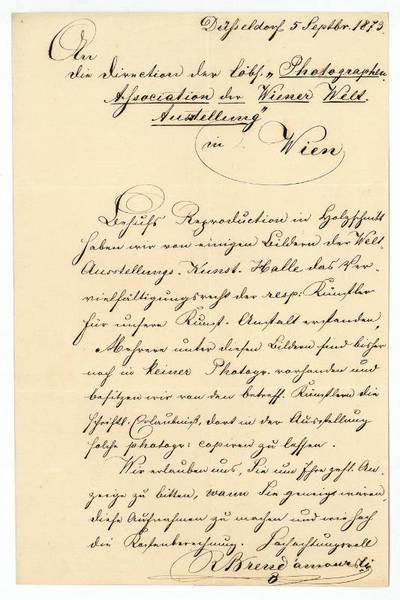 Düsseldorf 5 Septbr. 1873.
An
die Direction der löbl. „Photographen
Association der Wiener Welt-
Ausstellung"
in Wien
Behufs Reproduction in Holzschnitt
haben wir von einigen Bildern der Welt-
Ausstellungs-Kunst-Halle das Ver-
vielfältigungsrecht der resp. Künstler
für unsere Kunst-Anstalt erstanden,
Mehrere unter diesen Bildern sind bisher
noch in keiner Photogr. vorhanden und
besitzen wir von den betreff. Künstlern die
schriftl. Erlaubniß, dort in der Ausstellung
solche photogr: copiren zu lassen.
Wir erlauben uns, Sie um Ihre gefl. An-
zeige zu bitten, wann Sie geneigt wären,
diese Aufnahmen zu machen und wie hoch
die Kostenberechnung. Hochachtungsvoll
R. Brend'amour